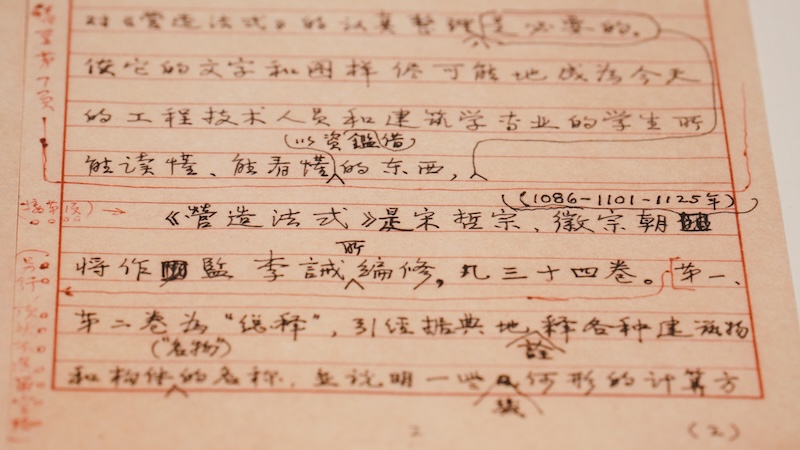 对《营造法式》的认真整理是必要的。
使它的文字和图样尽可能地成为今天
的工程技术人员和建筑学专业的学生所
(以资鑑借)
能读懂、能看懂的东西,
(1086-1101-1125年)
《營造法式》是宋哲宗、徽宗朝
所
将作監李誡編修,凡三十四卷。第一、
第二卷为“总释”,引经据典地
释各种建筑物
詮
(“名物”)
和构件的名称,并说明一些
几何形的计算方
2
(2)